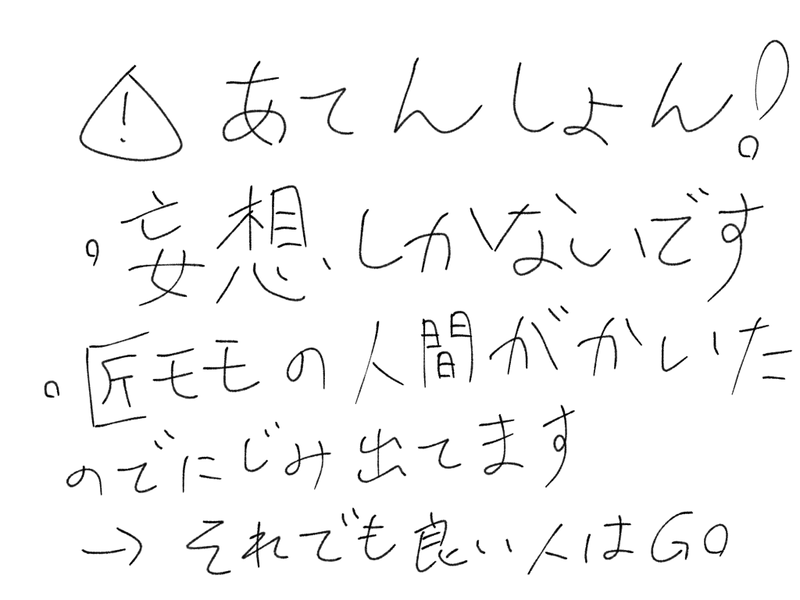 ⚠ あてんしょん!
・妄想しかないです
・匠モモの人間がかいた
のでにじみ出てます
→ それでも良い人はGO